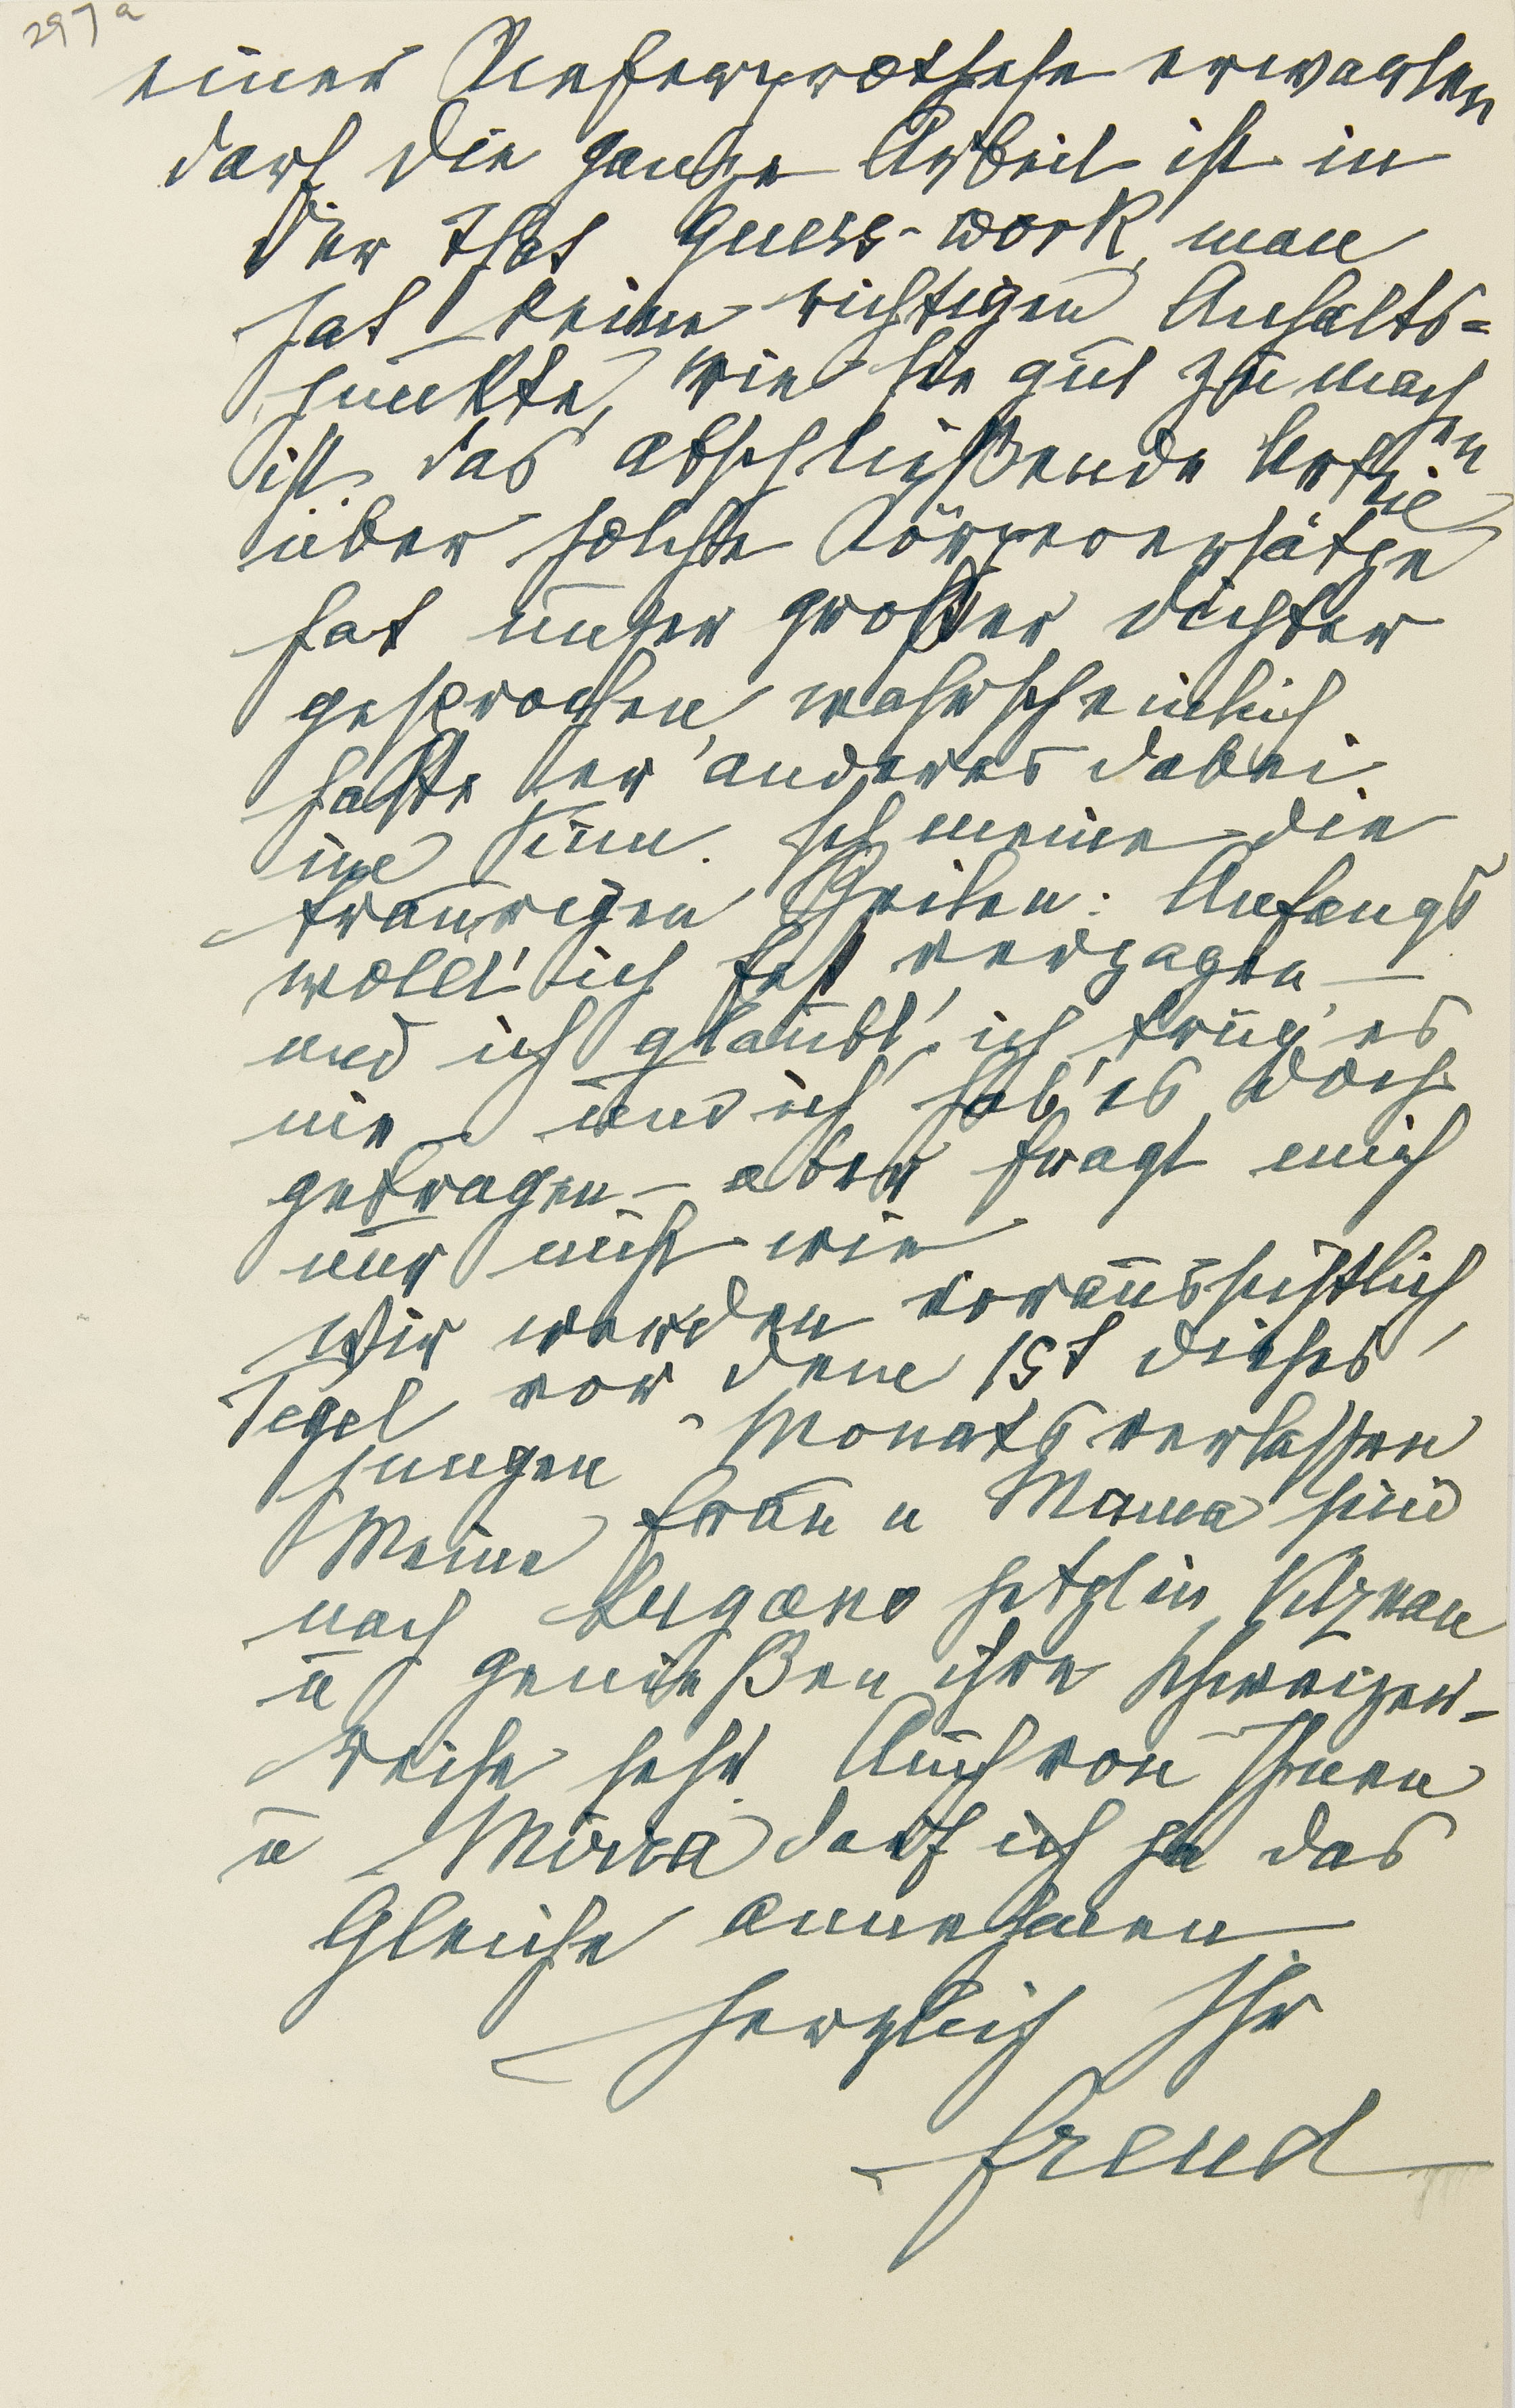 297a
einer Kieferprothese erwarten
darf. Die ganze Arbeit ist in
der That guess-work, man
hat keine richtigen Anhalts-
punkte, wie sie gut zu machen
ist. Das abschließende Urtheil
über solche Körperersätze
hat unser großer Dichter
gesprochen, wahrscheinlich
hatte er anderes dabei
im Sinn. Ich meine die
traurigen Zeilen: Anfangs
wollt' ich fast verzagen –
und ich glaubt', ich trüg' es
nie – und ich hab' es doch
getragen – aber fragt mich
nur nicht wie
Wir werden voraussichtlich
Tegel vor dem 15t dieses
Monats verlassen
Meine Frau u Mama sind
nach Lugano jetzt in Vitznau
u genießen ihre Schweizer-
reise sehr. Auch von Ihnen
u Mirra darf ich ja das
Gleiche annehmen
Herzlich Ihr
Freud